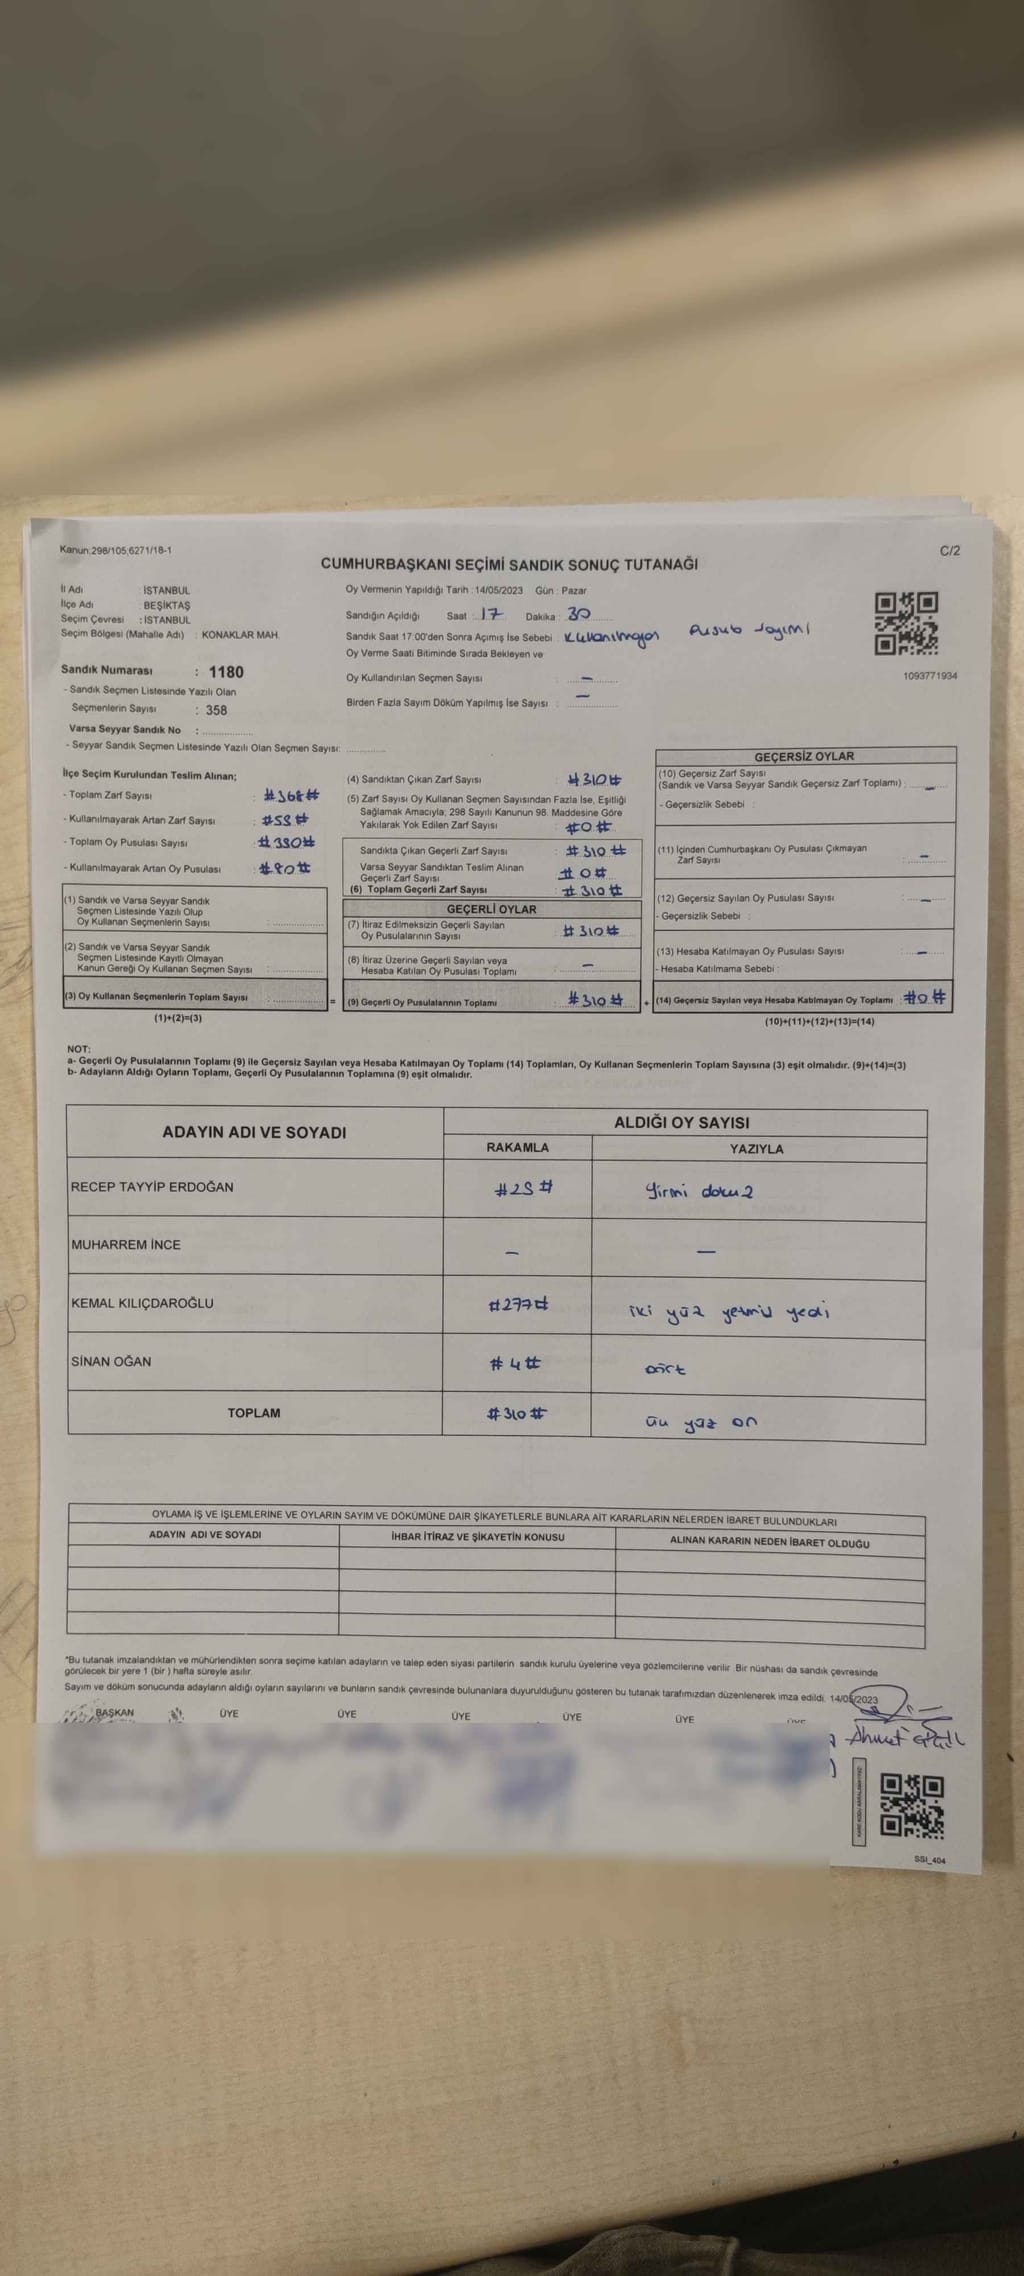 Kanun:298/105,6271/18-1
C/2
CUMHURBAŞKANI SEÇİMİ SANDIK SONUÇ TUTANAĞI
İl Adı : İSTANBUL
İlçe Adı : BEŞİKTAŞ
Seçim Çevresi : İSTANBUL
Seçim Bölgesi (Mahalle Adı) : KONAKLAR MAH.
Oy Vermenin Yapıldığı Tarih : 14/05/2023 Gün : Pazar
Sandığın Açıldığı Saat : 17 Dakika : 30
Sandık Saat 17:00'den Sonra Açımış İse Sebebi : Kullanılmayan Pusula sayımı
Oy Verme Saati Bitiminde Sırada Bekleyen ve
Oy Kullandırılan Seçmen Sayısı : –
Birden Fazla Sayım Döküm Yapılmış İse Sayısı : –
1093771934
Sandık Numarası : 1180
- Sandık Seçmen Listesinde Yazılı Olan
Seçmenlerin Sayısı : 358
Varsa Seyyar Sandık No :
- Seyyar Sandık Seçmen Listesinde Yazılı Olan Seçmen Sayısı:
İlçe Seçim Kurulundan Teslim Alınan;
- Toplam Zarf Sayısı : #368#
- Kullanılmayarak Artan Zarf Sayısı :
- Toplam Oy Pusulası Sayısı :
- Kullanılmayarak Artan Oy Pusulası :
(1) Sandık ve Varsa Seyyar Sandık
Seçmen Listesinde Yazılı Olup
Oy Kullanan Seçmenlerin Sayısı :
(2) Sandık ve Varsa Seyyar Sandık
Seçmen Listesinde Kayıtlı Olmayan
Kanun Gereği Oy Kullanan Seçmen Sayısı :
(3) Oy Kullanan Seçmenlerin Toplam Sayısı : =
(1)+(2)=(3)
(4) Sandıktan Çıkan Zarf Sayısı : #310#
(5) Zarf Sayısı Oy Kullanan Seçmen Sayısından Fazla İse, Eşitliği
Sağlamak Amacıyla; 298 Sayılı Kanunun 98. Maddesine Göre
Yakılarak Yok Edilen Zarf Sayısı : #0#
Sandıkta Çıkan Geçerli Zarf Sayısı : #310#
Varsa Seyyar Sandıktan Teslim Alınan
Geçerli Zarf Sayısı : #0#
(6) Toplam Geçerli Zarf Sayısı : #310#
GEÇERLİ OYLAR
(7) İtiraz Edilmeksizin Geçerli Sayılan
Oy Pusulalarının Sayısı : #310#
(8) İtiraz Üzerine Geçerli Sayılan veya
Hesaba Katılan Oy Pusulası Toplamı : –
(9) Geçerli Oy Pusulalarının Toplamı : #310# +
GEÇERSİZ OYLAR
(10) Geçersiz Zarf Sayısı
(Sandık ve Varsa Seyyar Sandık Geçersiz Zarf Toplamı) : –
- Geçersizlik Sebebi :
(11) İçinden Cumhurbaşkanı Oy Pusulası Çıkmayan
Zarf Sayısı : –
(12) Geçersiz Sayılan Oy Pusulası Sayısı : –
- Geçersizlik Sebebi :
(13) Hesaba Katılmayan Oy Pusulası Sayısı : –
- Hesaba Katılmama Sebebi :
(14) Geçersiz Sayılan veya Hesaba Katılmayan Oy Toplamı : #0#
(10)+(11)+(12)+(13)=(14)
NOT:
a- Geçerli Oy Pusulalarının Toplamı (9) ile Geçersiz Sayılan veya Hesaba Katılmayan Oy Toplamı (14) Toplamları, Oy Kullanan Seçmenlerin Toplam Sayısına (3) eşit olmalıdır. (9)+(14)=(3)
b- Adayların Aldığı Oyların Toplamı, Geçerli Oy Pusulalarının Toplamına (9) eşit olmalıdır.
ADAYIN ADI VE SOYADI ALDIĞI OY SAYISI
RAKAMLA YAZIYLA
RECEP TAYYİP ERDOĞAN #29# Yirmi dokuz
MUHARREM İNCE – –
KEMAL KILIÇDAROĞLU #277# iki yüz yetmiş yedi
SİNAN OĞAN #4# Dört
TOPLAM #310# Üç yüz on
OYLAMA İŞ VE İŞLEMLERİNE VE OYLARIN SAYIM VE DÖKÜMÜNE DAİR ŞİKAYETLERLE BUNLARA AİT KARARLARIN NELERDEN İBARET BULUNDUKLARI
ADAYIN ADI VE SOYADI İHBAR İTİRAZ VE ŞİKAYETİN KONUSU ALINAN KARARIN NEDEN İBARET OLDUĞU
*Bu tutanak imzalandıktan ve mühürlendikten sonra seçime katılan adayların ve talep eden siyasi partilerin sandık kurulu üyelerine veya gözlemcilerine verilir. Bir nüshası da sandık çevresinde
görülecek bir yere 1 (bir ) hafta süreyle asılır.
Sayım ve döküm sonucunda adayların aldığı oyların sayılarını ve bunların sandık çevresinde bulunanlara duyurulduğunu gösteren bu tutanak tarafımızdan düzenlenerek imza edildi. 14/05/2023
BAŞKAN ÜYE ÜYE ÜYE ÜYE ÜYE ÜYE
Ahmet
SSI_404